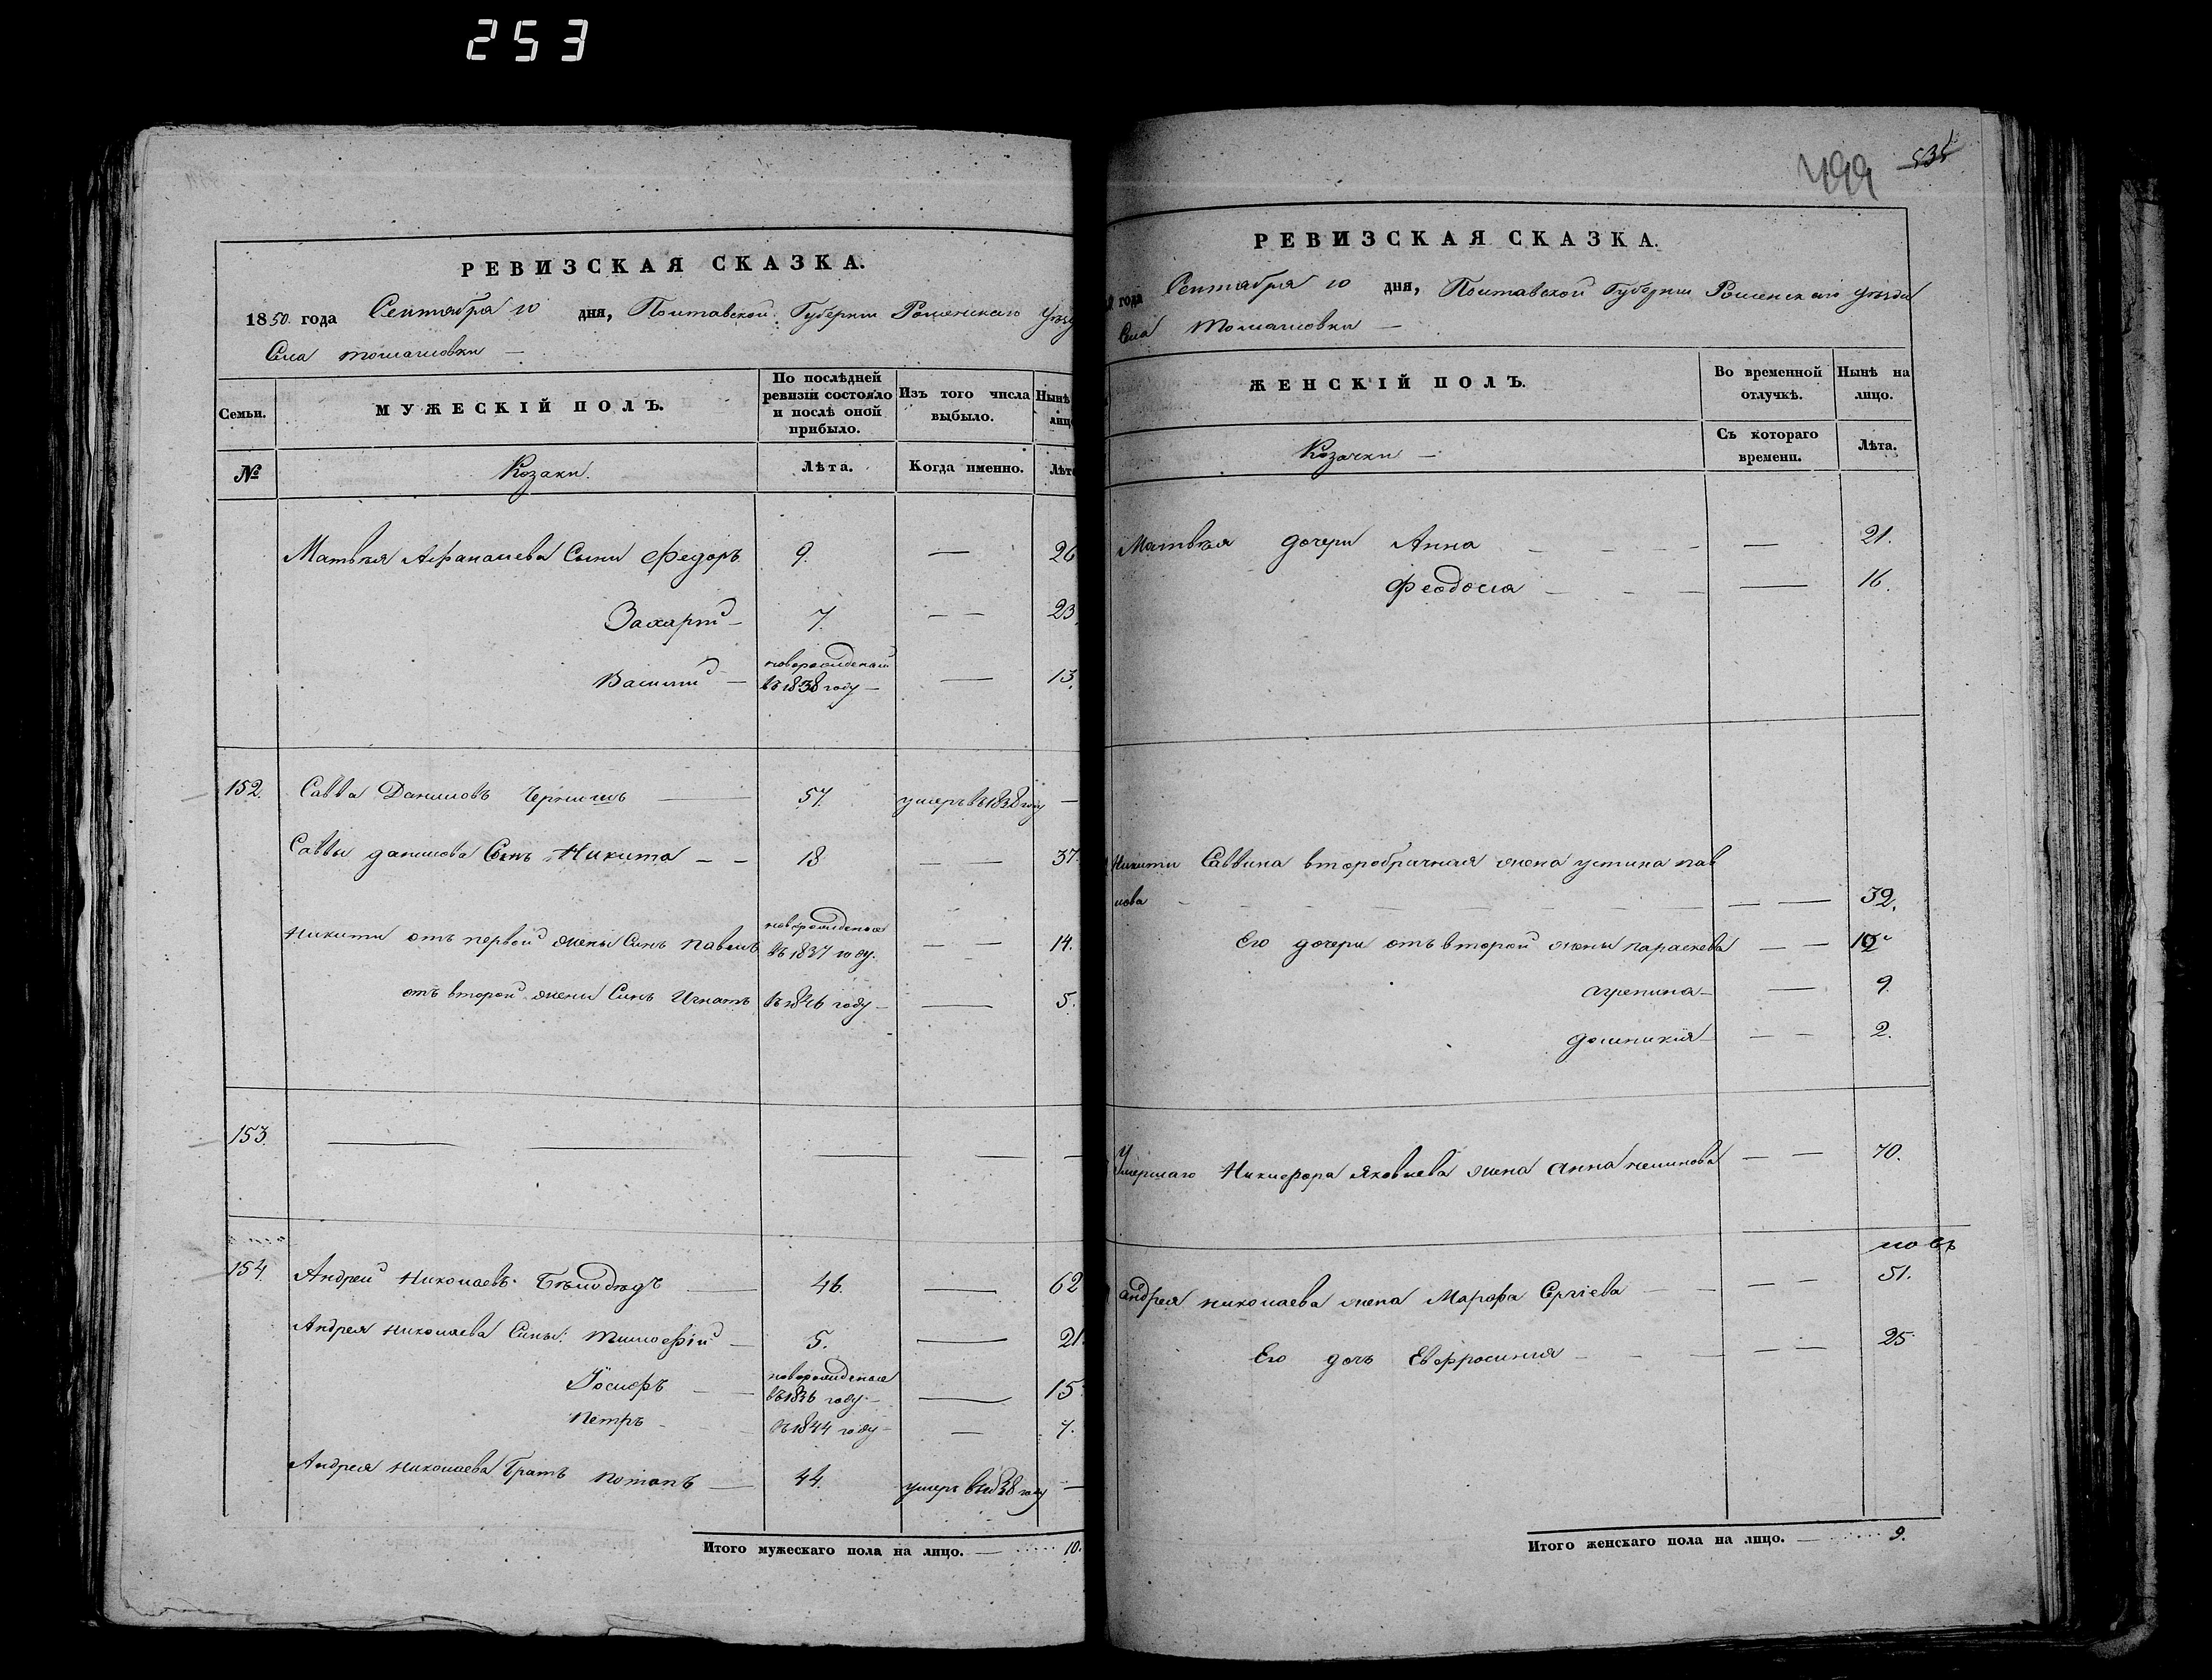 253
РЕВИЗСКАЯ СКАЗКА.
1850 года Сентября 10 дня, Полтавской Губернии Роменскаго
Села Томашовки —
Семьи.
МУЖЕСКІЙ ПОЛЪ.
По послѣдней ревизіи состояло и послѣ оной прибыло.
Изъ того числа выбыло.
Нынѣ
лицо
№
Козаки.
Лѣта.
Когда именно.
Лѣта
Матвѣя Афанасиева Сыны Федоръ 9. — 26
Захарій — 7. — — 23.
Василий — новорожденый въ 1838 году — — 13.
152. Савва Даниловъ Чернишъ — 57. умеръ въ 1838 году —
Саввы данилова Сынъ Никита — — 18 — — 37.
Никити отъ первой жены Синъ павелъ новорожденые въ 1837 году. — — 14.
отъ второй жены Синъ Игнатъ въ 1846 году — — 5.
153. — — — — —
154. Андрей Николаевъ Бѣлодѣдъ — 46. — 62
Андрея николаева Сины: тимофій — 5. — 21.
Іосифъ — — новорожденые въ 1836 году — — 15.
петръ — въ 1844 году — — 7.
Андрея николаева Братъ потапъ — 44. умеръ въ 1838 году —
Итого мужескаго пола на лицо. — 10.
499 535
РЕВИЗСКАЯ СКАЗКА.
года Сентября 10 дня, Полтавской Губернии Роменскаго уѣзда
Села Томашовки —
ЖЕНСКІЙ ПОЛЪ.
Во временной отлучкѣ.
Нынѣ на лицо.
Козачки —
Съ котораго времени.
Лѣта.
Матвѣя дочери Анна — — — — — 21.
Феодосия — — — — 16.
Никити Саввина второбрачная жена устина пав
лова — — — 32.
Его дочери отъ второй жены параскева — — 12
агрепина — — 9.
домникия — — — 2.
Умершаго Никифора Яковлева жена Анна — — 70.
андрея николаева жена Марфа Сергіева — — — — 51.
Его дочь Евфросиния — — — — — 25.
Итого женскаго пола на лицо. — 9.